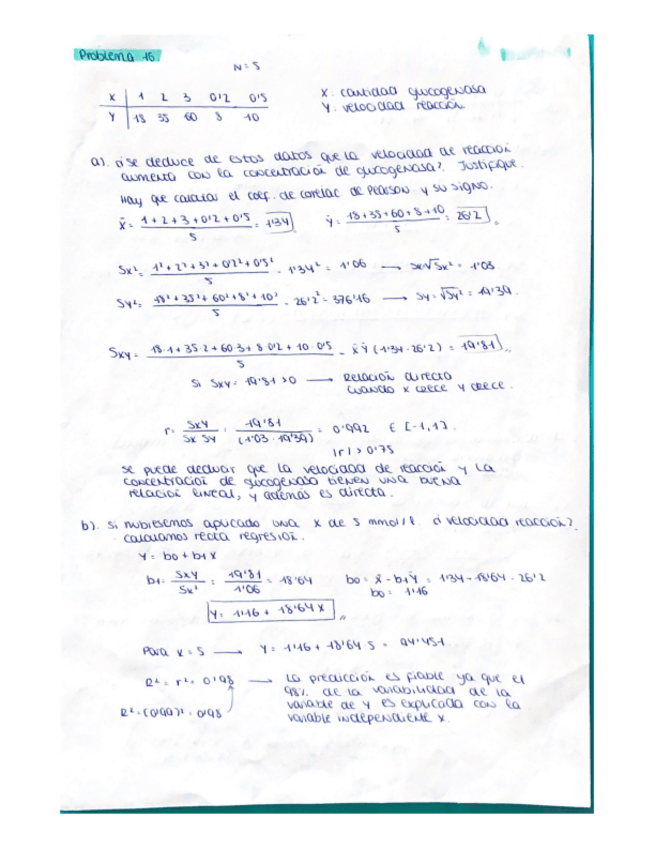 Problema 16.
N = 5
X 1 2 3 0'2 0'5
Y 18 35 60 8 10
X: cantidad glucogenasa
Y: velocidad reacción
a). ¿Se deduce de estos datos que la velocidad de reacción
aumenta con la concentración de glucogenasa? Justifique.
Hay que calcular el coef. de correlac de Pearson y su signo.
x̄ = (1 + 2 + 3 + 0'2 + 0'5)/5 = 1'34 ȳ = (18 + 35 + 60 + 8 + 10)/5 = 26'2
Sx² = (1² + 2² + 3² + 0'2² + 0'5²)/5 - 1'34² = 1'06 → Sx √Sx² = 1'03
Sy² = (18² + 35² + 60² + 8² + 10²)/5 - 26'2² = 376'16 → Sy = √Sy² = 19'39.
Sxy = (18·1 + 35·2 + 60·3 + 8·0'2 + 10·0'5)/5 - x̄ ȳ (1'34 · 26'2) = 19'81
Si Sxy = 19'81 > 0 → Relación directa
cuando x crece y crece.
r = Sxy/(Sx Sy) = 19'81/(1'03 · 19'39) = 0'992 ∈ [-1,1].
|r| > 0'75
Se puede deducir que la velocidad de reacción y la
concentración de glucogenasa tienen una buena
relación lineal, y además es directa.
b). Si hubiesemos aplicado una x de 5 mmol/l ¿velocidad reacción?
calculamos recta regresión.
Y = b0 + b1 X
b1 = Sxy/Sx² = 19'81/1'06 = 18'64 b0 = x̄ - b1 ȳ = 1'34 - 18'64 · 26'2
b0 = 1'16
Y = 1'16 + 18'64 X
Para x = 5 → Y = 1'16 + 18'64 · 5 = 94'451
R² = r² = 0'98 → La predicción es fiable ya que el
98% de la variabilidad de la
variable de y es explicada con la
R² = (0'99)² = 0'98 variable independiente x.